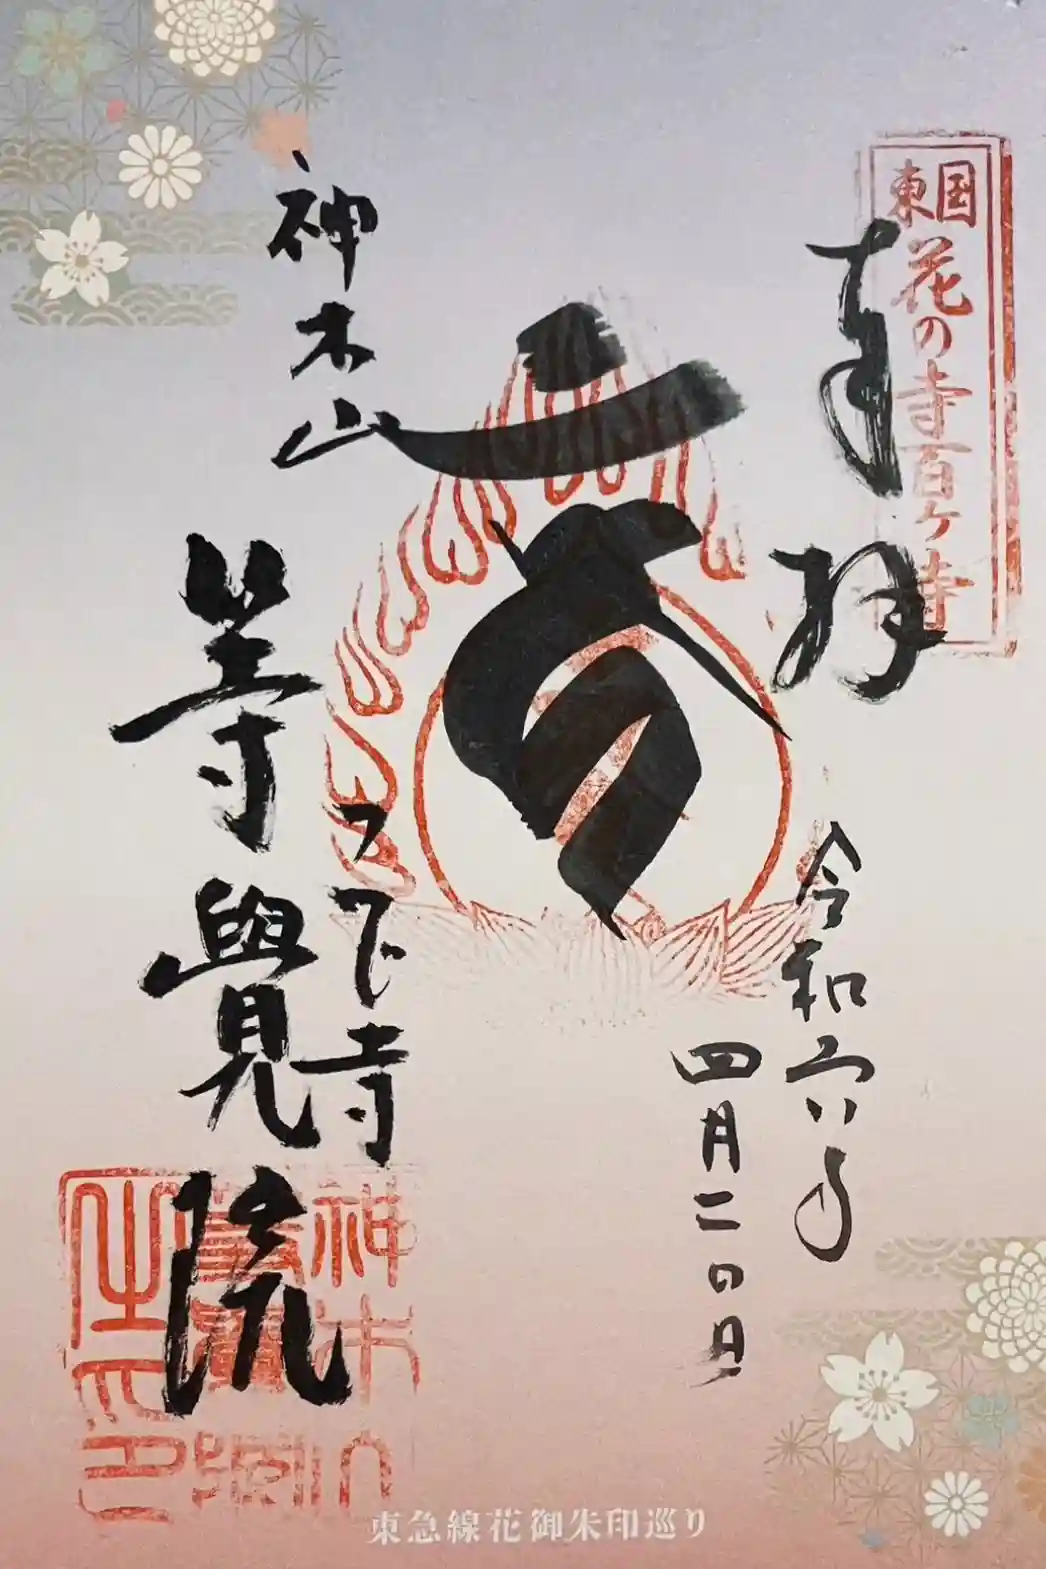 東国
花の寺百ヶ寺
奉拝
令和六年
四月二の日
神木山
つつじ寺
等覺院
東急線花御朱印巡り